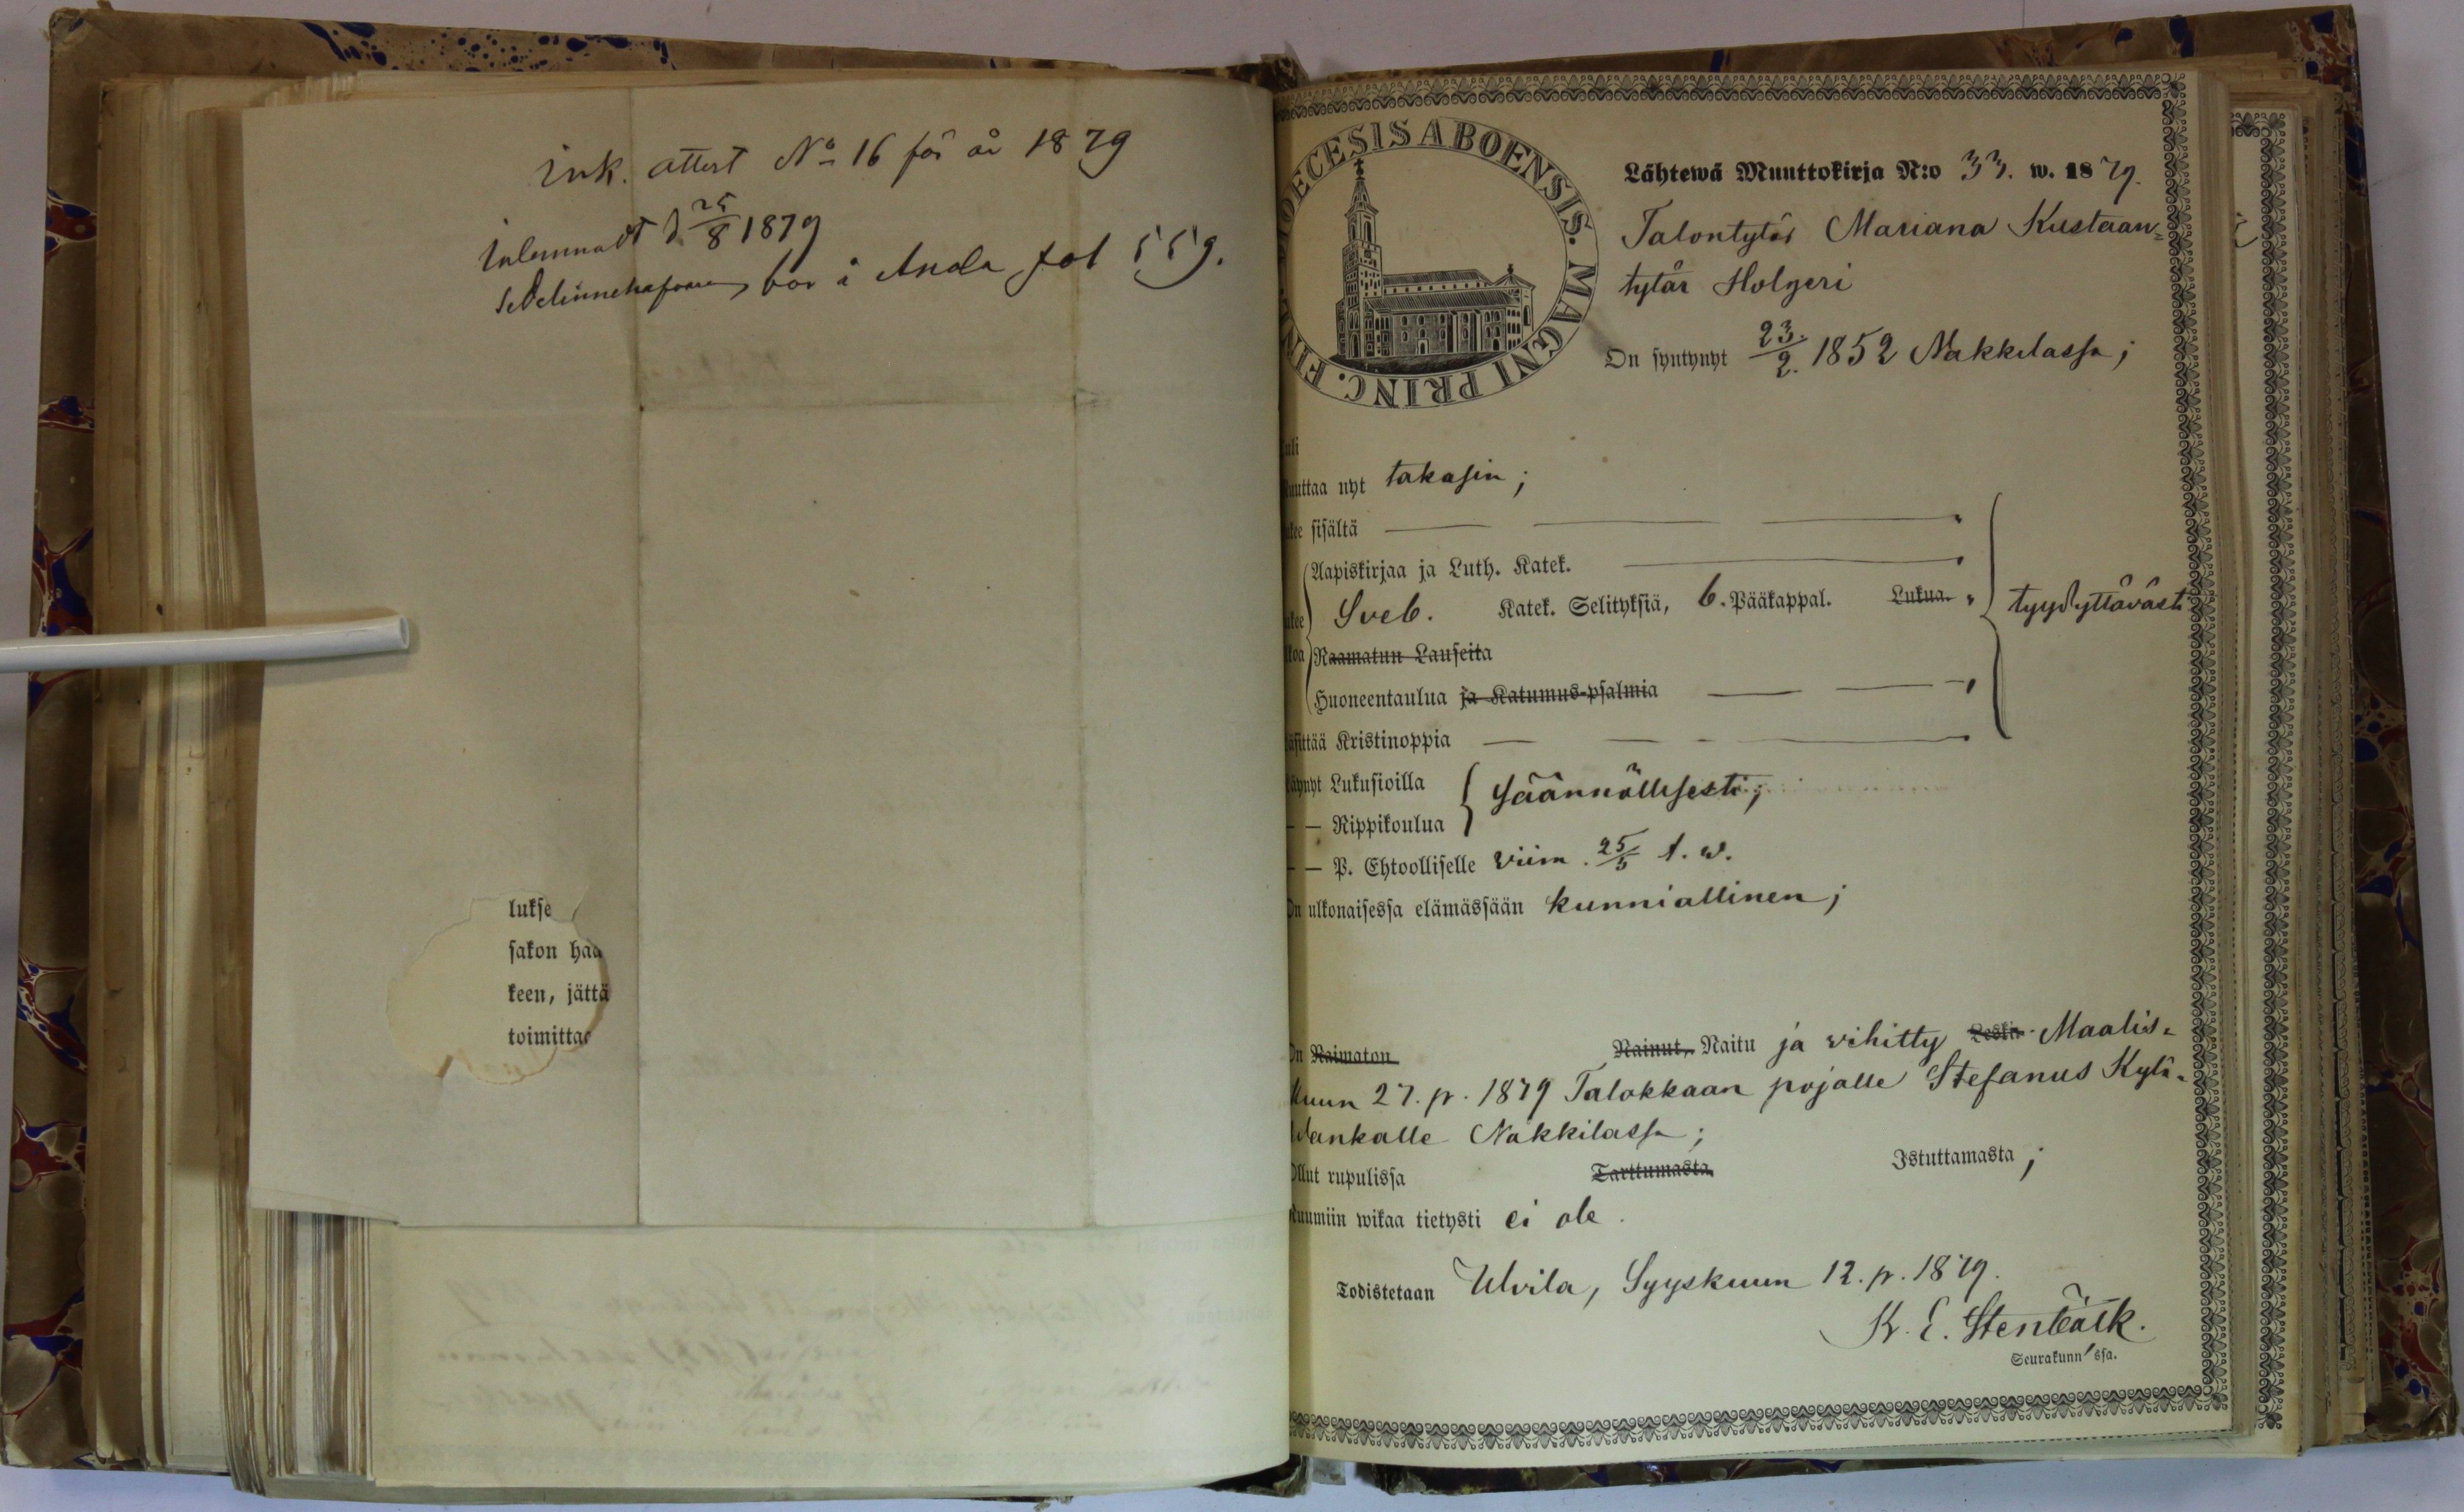 Ink. attest No 16 för år 1879
Inlemnadt d. 25/8 1879
bor i Anola fol 559.
lukse
sakon haa
keen, jättä
toimittaa
DIOECESIS ABOENSIS. MAGNI PRINC. FIN
Lähtewä Muuttokirja N:o 33. w. 1879.
Talontytär Mariana Kustaan=
tytär Holgeri
On syntynyt 23/2. 1852 Nakkilassa;
uli
uuttaa nyt takasin;
kee sisältä
Aapiskirjaa ja Luth. Katek.
ukee Sveb. Katek. Selityksiä, 6. Pääkappal. Lukua. tyydyttävästi
koa Raamatun Lauseita
Huoneentaulua ja Katumus-psalmia
äsittää Kristinoppia
äynyt Lukusioilla
säännöllisesti;
— — Rippikoulua
— — P. Ehtoolliselle viim. 25/5 t. w.
On ulkonaisessa elämässään kunniallinen;
On Naimaton Nainut, Naitu ja vihitty Leski. Maalis=
kuun 27. p. 1879 Talokkaan pojalle Stefanus Kylä=
Nakkilassa;
Ollut rupulissa Tarttumasta Istuttamasta;
uumiin wikaa tietysti ei ole.
Todistetaan Ulvila, Syyskuun 12. p. 1879.
K. E. Stenbäck.
Seurakunn' ssa.